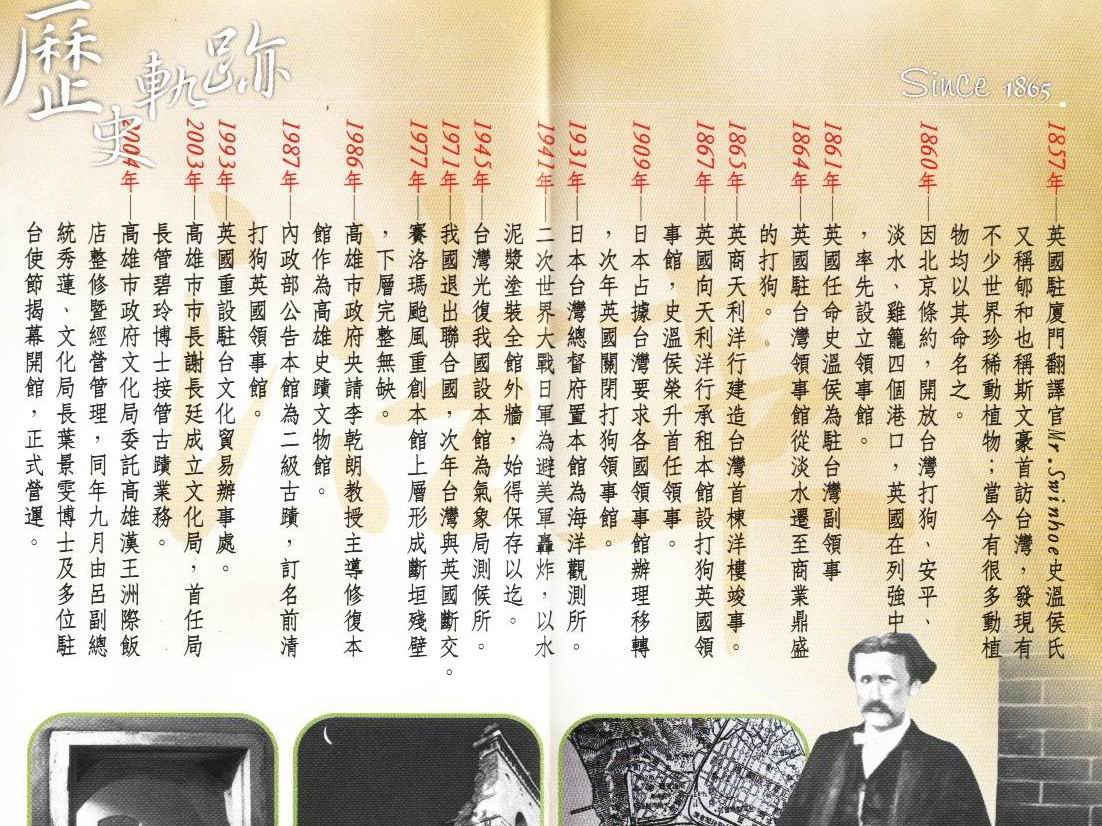 歷史軌跡
Since 1865
1857年—英國駐廈門翻譯官Mr.Swinhoe史溫侯氏
又稱郇和也稱斯文豪首訪台灣，發現有
不少世界珍稀動植物；當今有很多動植
物均以其命名之。
1860年—因北京條約，開放台灣打狗、安平、
淡水、雞籠四個港口，英國在列強中
，率先設立領事館。
1861年—英國任命史溫侯為駐台灣副領事
1864年—英國駐台灣領事館從淡水遷至商業鼎盛
的打狗。
1865年—英商天利洋行建造台灣首棟洋樓竣事。
1867年—英國向天利洋行承租本館設打狗英國領
事館，史溫侯榮升首任領事。
1909年—日本占據台灣要求各國領事館辦理移轉
，次年英國關閉打狗領事館。
1931年—日本台灣總督府置本館為海洋觀測所。
1941年—二次世界大戰日軍為避美軍轟炸，以水
泥漿塗裝全館外牆，始得保存以迄。
1945年—台灣光復我國設本館為氣象局測候所。
1971年—我國退出聯合國，次年台灣與英國斷交。
1977年—賽洛瑪颱風重創本館上層形成斷垣殘壁
，下層完整無缺。
1986年—高雄市政府央請李乾朗教授主導修復本
館作為高雄史蹟文物館。
1987年—內政部公告本館為二級古蹟，訂名前清
打狗英國領事館。
1993年—英國重設駐台文化貿易辦事處。
2003年—高雄市市長謝長廷成立文化局，首任局
長管碧玲博士接管古蹟業務。
2004年—高雄市政府文化局委託高雄漢王洲際飯
店整修暨經營管理，同年九月由呂副總
統秀蓮、文化局長葉景雯博士及多位駐
台使節揭幕開館，正式營運。